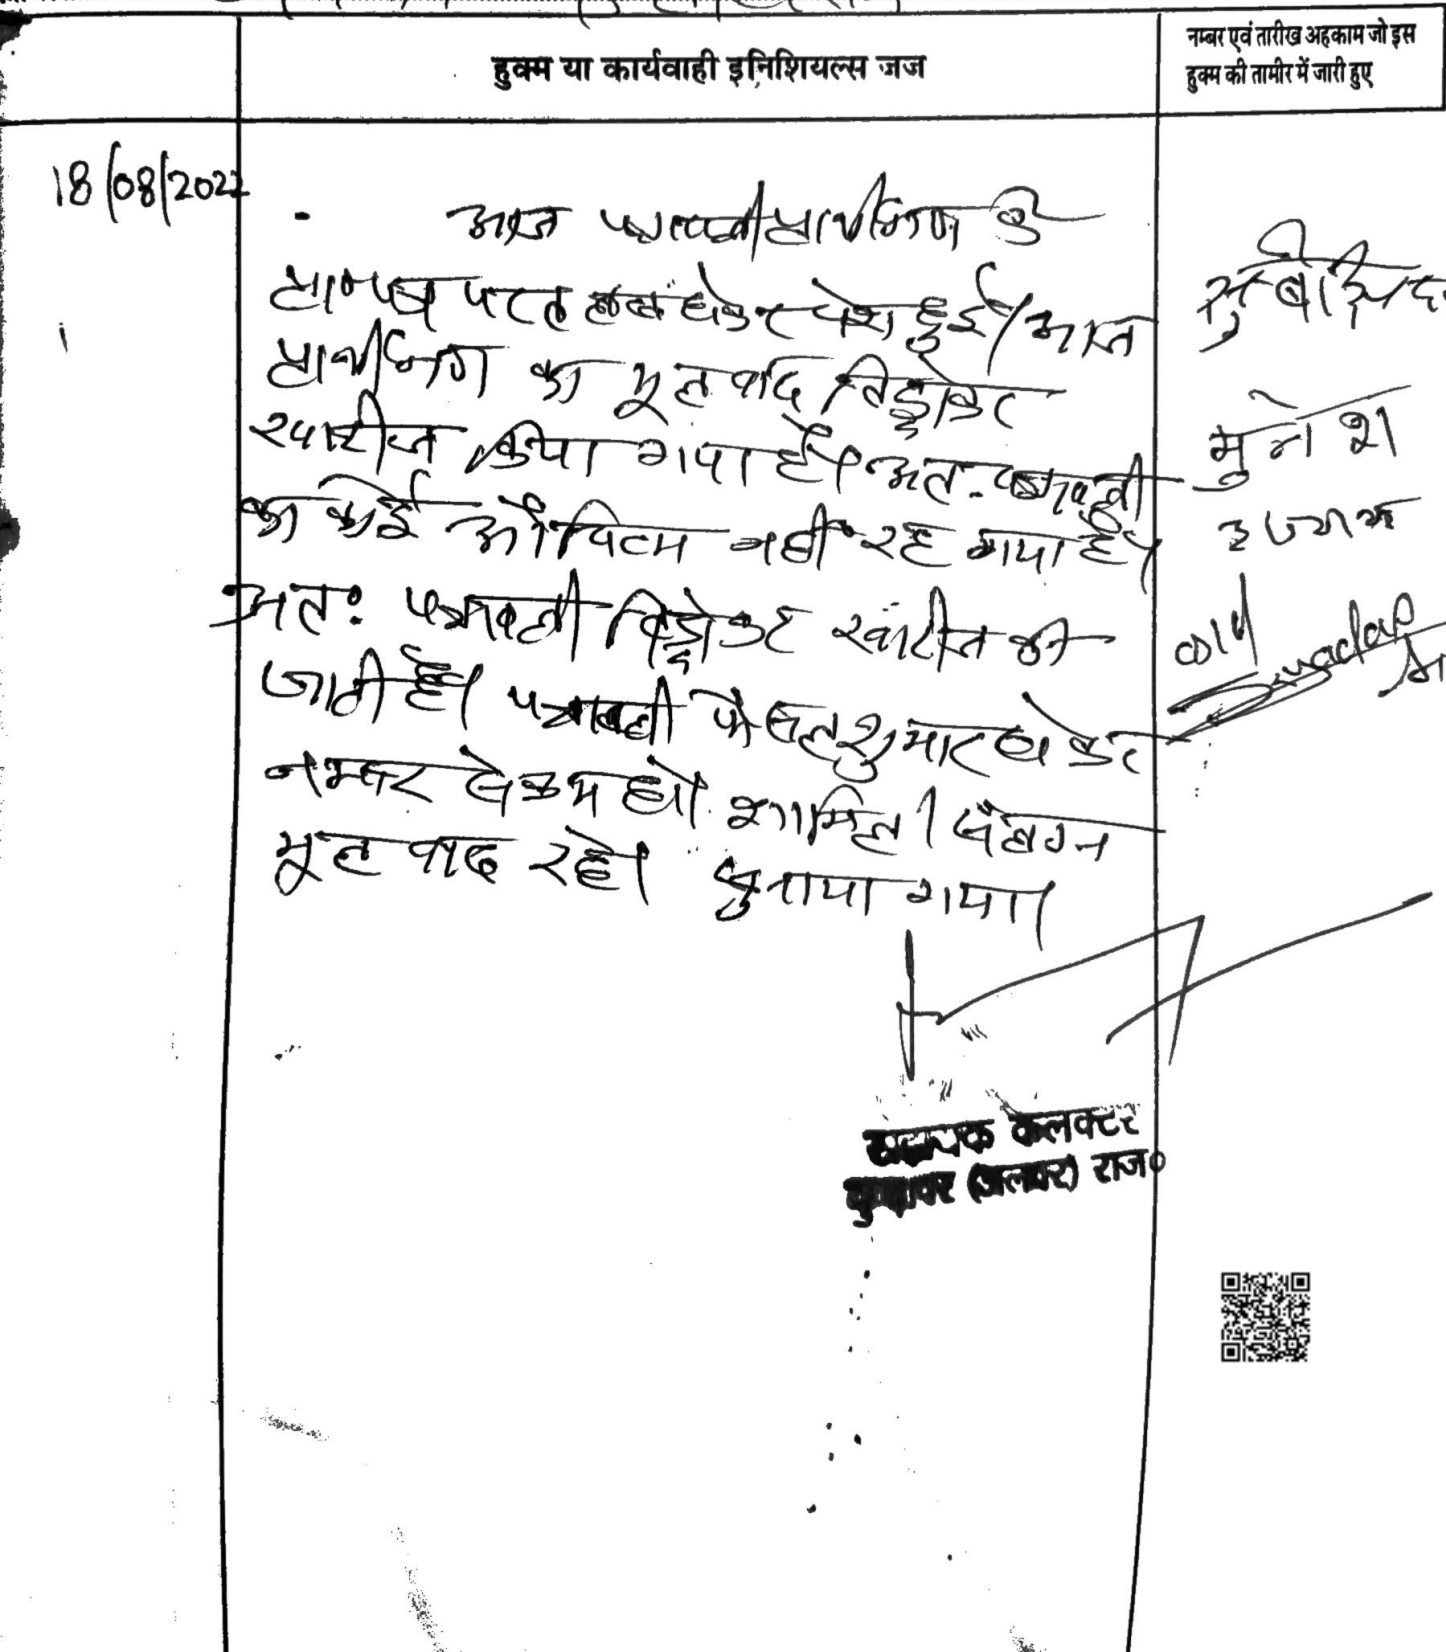 हुक्म या कार्यवाही इनिशियल्स जज
नम्बर एवं तारीख अहकाम जो इस
हुक्म की तामीर में जारी हुए
18/08/2022
आज पत्रावली प्रार्थीगण के
प्रा०पत्र पर तलब होकर पेश हुई। आज
प्रार्थीगण का मूल वाद विड्रोकर
खारीज किया गया है। अत: पत्रावली
का कोई औचित्य नहीं रह गया है।
अत: पत्रावली विड्रोकर खारीज की
जाती है। पत्रावली फैसल शुमार होकर
नम्बर से कम हो। शामिल। संलग्न
मूल वाद रहे। सुनाया गया।
मुनेश
सहायक कलक्टर
(अलवर) राज०